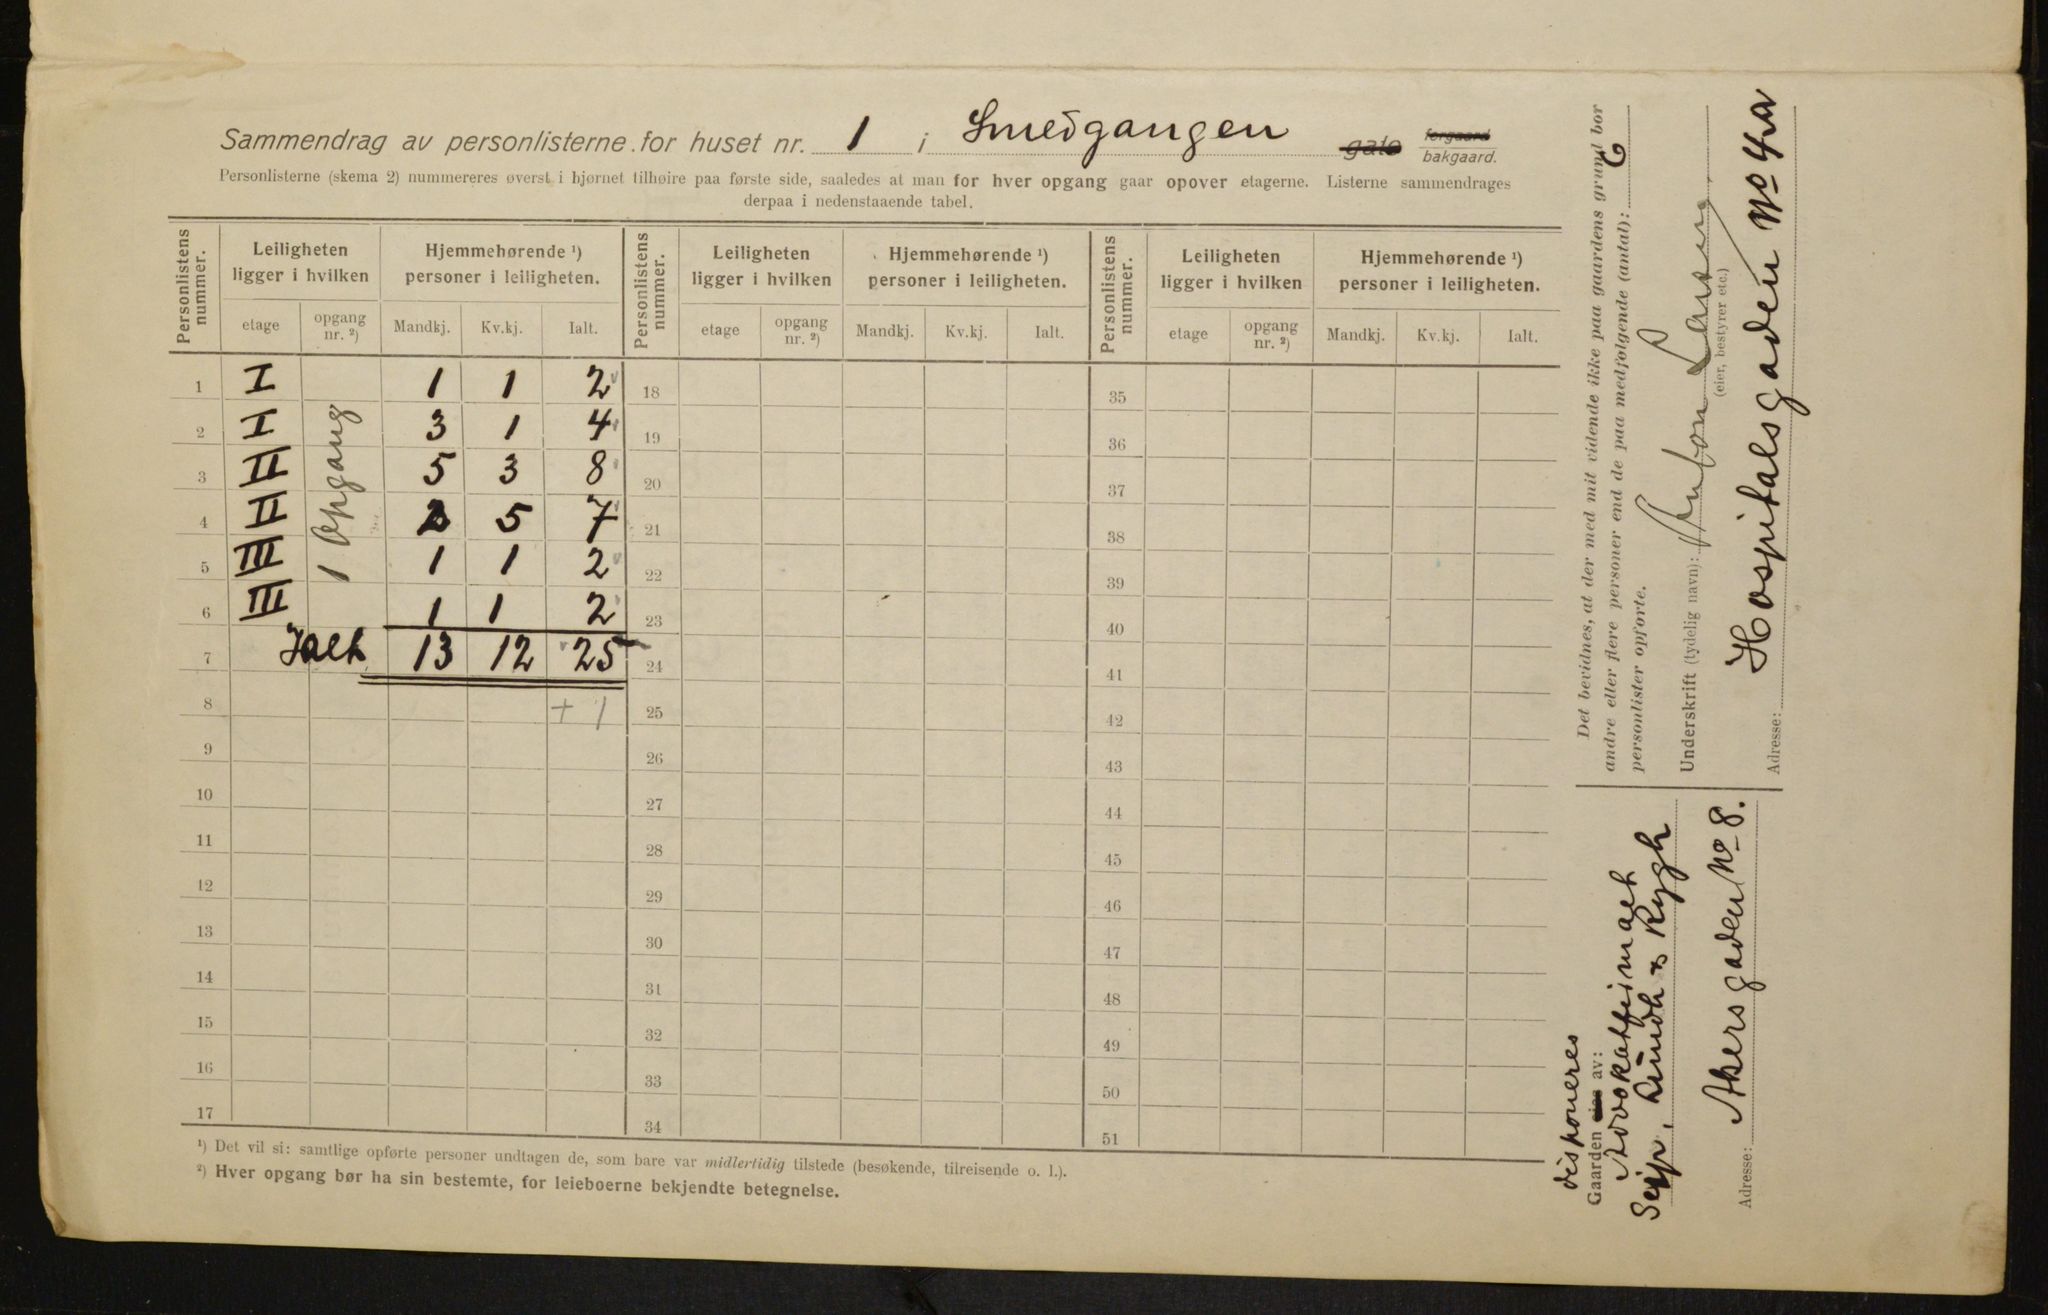 Sammendrag av personlisterne for huset nr. 1 i Smedgangen gate forgaard bakgaard.
Personlisterne (skema 2) nummereres øverst i hjørnet tilhøire paa første side, saaledes at man for hver opgang gaar opover etagerne. Listerne sammendrages
derpaa i nedenstaaende tabel.
Personlistens nummer. Leiligheten ligger i hvilken Hjemmehørende ¹) personer i leiligheten. Personlistens nummer. Leiligheten ligger i hvilken Hjemmehørende ¹) personer i leiligheten. Personlistens nummer. Leiligheten ligger i hvilken Hjemmehørende ¹) personer i leiligheten.
etage opgang nr. ²) Mandkj. Kv.kj. Ialt. etage opgang nr. ²) Mandkj. Kv.kj. Ialt. etage opgang nr. ²) Mandkj. Kv.kj. Ialt.
1 I 1 1 2 18 35
2 I 3 1 4 19 36
3 II 5 3 8 20 37
4 II 2 5 7 21 38
5 III 1 1 2 22 39
6 III 1 1 2 23 40
1 Opgang
7 Ialt 13 12 25 24 41
8 + 1 25 42
9 26 43
10 27 44
11 28 45
12 29 46
13 30 47
14 31 48
15 32 49
16 33 50
17 34 51
¹) Det vil si: samtlige opførte personer undtagen de, som bare var midlertidig tilstede (besøkende, tilreisende o. l.).
²) Hver opgang bør ha sin bestemte, for leieboerne bekjendte betegnelse.
Det bevidnes, at der med mit vidende ikke paa gaardens grund bor
andre eller flere personer end de paa medfølgende (antal): 6
personlister opførte.
Underskrift (tydelig navn): Anton Larsen
(eier, bestyrer etc.)
Adresse: Hospitalsgaden No 4a
disponeres
Gaarden eies av:
Advokatfirmaet
Sejp. Lundh & Rygh
Adresse: Akersgaden No 8.